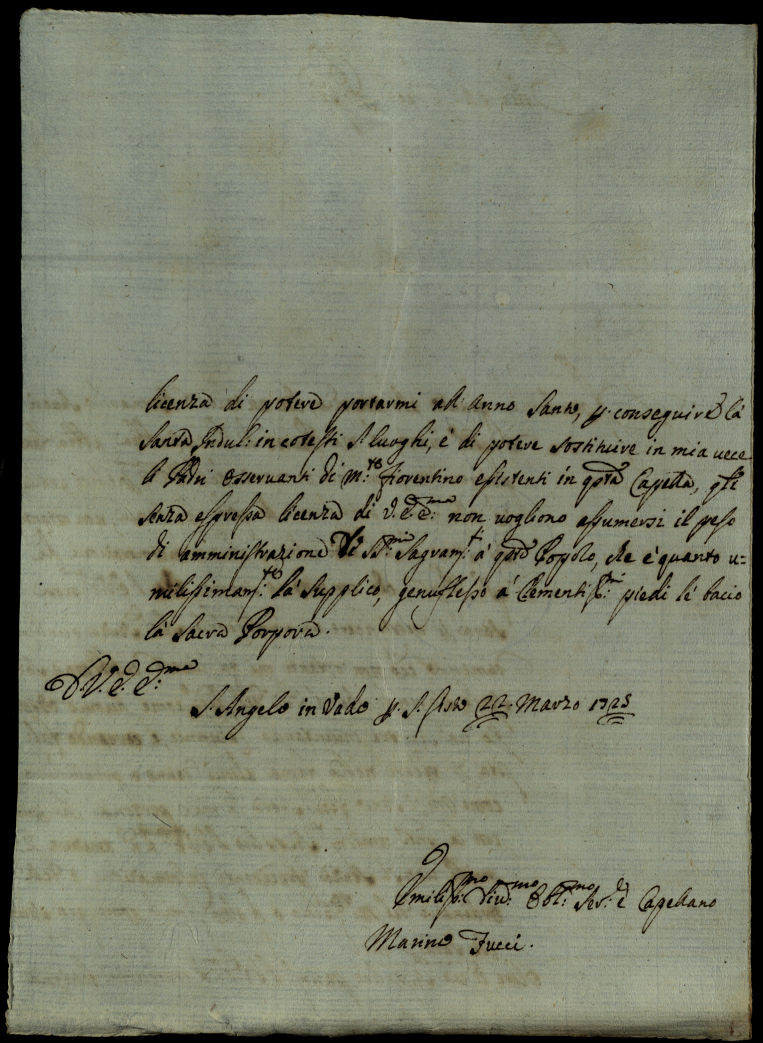 licenza di potere portarmi all'Anno Santo, p. conseguire la
Santa Indul: in cotesti S. luoghi, è di potere sostituire in mia vece
li Padri Osservanti di M:te Fiorentino esistenti in qsta Capella, qli
senza espressa licenza di V. E. E:ma non vogliono assumersi il peso
di amministrazione de SS:mi Sagram:ti a qsto Popolo, che è quanto u=
milissimam:te la supplico, genuflesso a Clementiss:mi piedi le bacio
la Sacra Porpora.
D. V. E. E:ma
S. Angelo in Vado p. S. Sisto 22. Marzo 1725
Umiliss:mo Div:mo Obl:mo Ser:e è Capellano
Marino Fucci.